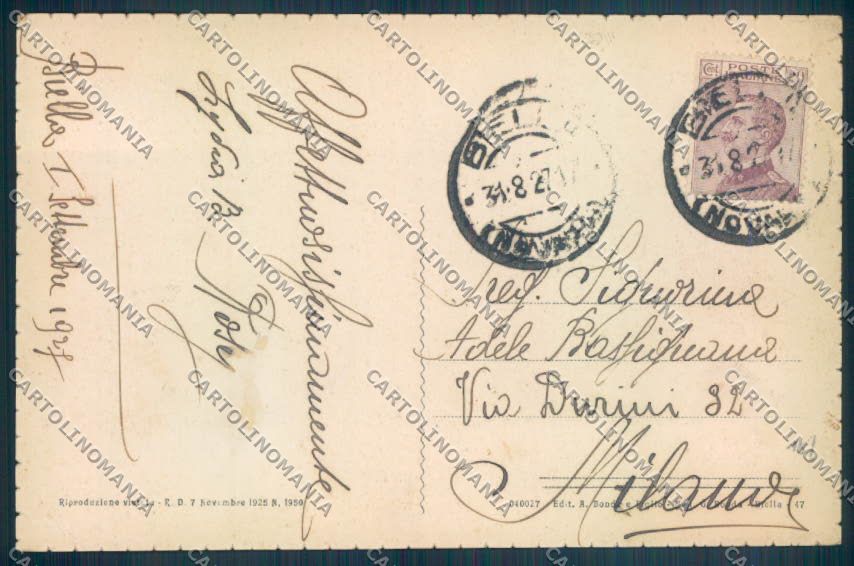 Biella I Settembre 1927
Lydia B. Rosy
Affettuosissimamente
POSTE
BIELLA
31·8·27·17
(NOVARA)
BIELLA
31·8·27
(NOVA
Preg. Signorina
Adele Bassignana
Via Durini 32
Milano
Riproduzione vietata - R. D. 7 Novembre 1925 N. 1950
040027 - Edit. A. Bonda e Figlio - Biella - 47
CARTOLINOMANIA